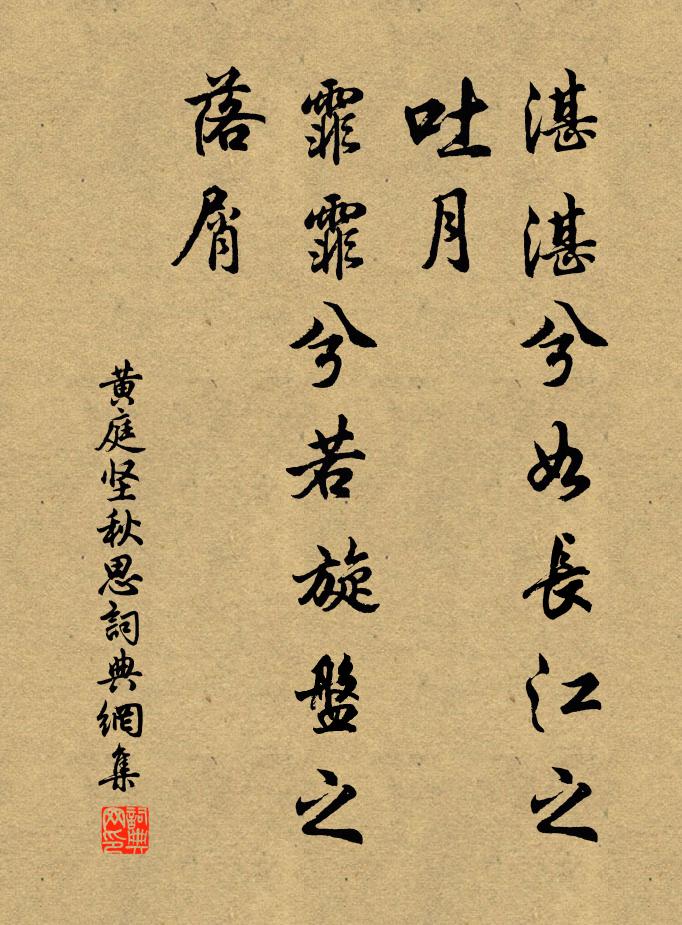 湛湛兮如長江之
吐月
霏霏兮若旋盤之
落屑
黄庭坚秋思詞典網集
詞典网印